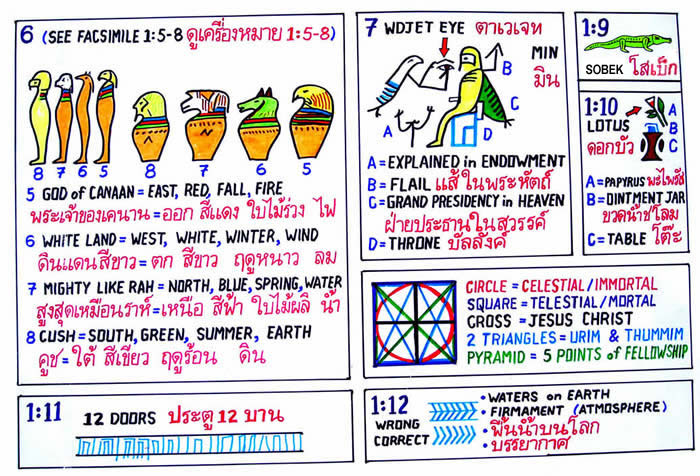 6 (SEE FACSIMILE 1:5-8 ดูเครื่องหมาย 1:5-8)
8 7 6 5 8 7 6 5
5 GOD of CANAAN = EAST, RED, FALL, FIRE
พระเจ้าของเคนาน = ออก สีแดง ใบไม้ร่วง ไฟ
6 WHITE LAND = WEST, WHITE, WINTER, WIND
ดินแดนสีขาว = ตก สีขาว ฤดูหนาว ลม
7 MIGHTY LIKE RAH = NORTH, BLUE, SPRING, WATER
สูงสุดเหมือนราห์ = เหนือ สีฟ้า ใบไม้ผลิ น้ำ
8 CUSH = SOUTH, GREEN, SUMMER, EARTH
คูช = ใต้ สีเขียว ฤดูร้อน ดิน
7 WDJET EYE ตาเวเจท
MIN
มิน
B
C
A
D
A = EXPLAINED in ENDOWMENT
B = FLAIL แส้ในพระหัตถ์
C = GRAND PRESIDENCY in HEAVEN
ฝ่ายประธานในสวรรค์
D = THRONE บัลลังค์
1:9
SOBEK โสเบ็ก
1:10
LOTUS
ดอกบัว
A
B
C
A = PAPYRUS พะไพรัช
B = OINTMENT JAR
ขวดน้ำชโลม
C = TABLE โต๊ะ
CIRCLE = CELESTIAL/IMMORTAL
SQUARE = TELESTIAL/MORTAL
CROSS = JESUS CHRIST
2 TRIANGLES = URIM & THUMMIM
PYRAMID = 5 POINTS of FELLOWSHIP
1:11
12 DOORS ประตู 12 บาน
1:12
WRONG
CORRECT
• WATERS on EARTH
• FIRMAMENT (ATMOSPHERE)
• พื้นน้ำบนโลก
• บรรยากาศ